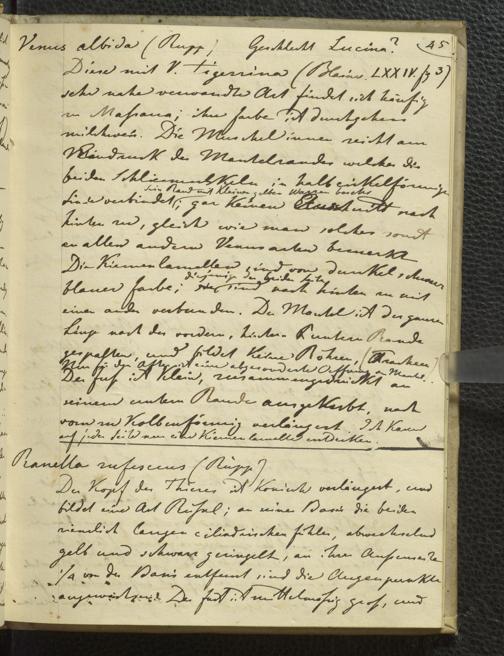 45
Venus albida (Rupp) Geschlecht Lucina?
Diese mit V. Tigerrina (Blainv. LXXIV. fg 3)
sehr nahe verwandte Art findet sich häufig
in Massaua; ihre farbe ist durchgehens
milchweis. Die Muschel innen reicht am
des Mantelrandes welcher die
beiden in halbzirkelförmiger
sein Rand mit kleinen
Linie verbindet; gar keinen nach
hinten zu, gleich wie man solches sonst
an allen andern Venusarten bemerkt
Die Kiemenlamellen sind von dunkel schwarz
diejenigen der beiden Seite
blauer farbe; sind nach hinten zu mit
einander verbunden. Der Mantel ist der ganzen
Länge nach des vordern, hintern & untern Rande
gespalten, und bildet keine Röhren,
Nur für den After ist eine abgesonderte Öffnung am Mantel.
Der fuss ist klein, zusammengedrückt an
seinem untern Rande ausgekerbt, nach
vorn zu Kolbenförmig verlängert. Ich kann
auf jeder Seite nur eine Kiemenlamelle entdecken.
Ranella rufescens (Rüpp)
Der Kopf des Thieres ist Konisch verlängert, und
bildet eine Art Rüssel; an seiner Basis die beiden
ziemlich langen cilindrischen fühler, abwechselnd
gelb und schwarz geringelt, an ihrer Aussenseite
1/4 von der Basis entfernt sind die Augenpunkte
angewachsen. Der fuss ist mittelmäsig gros, und